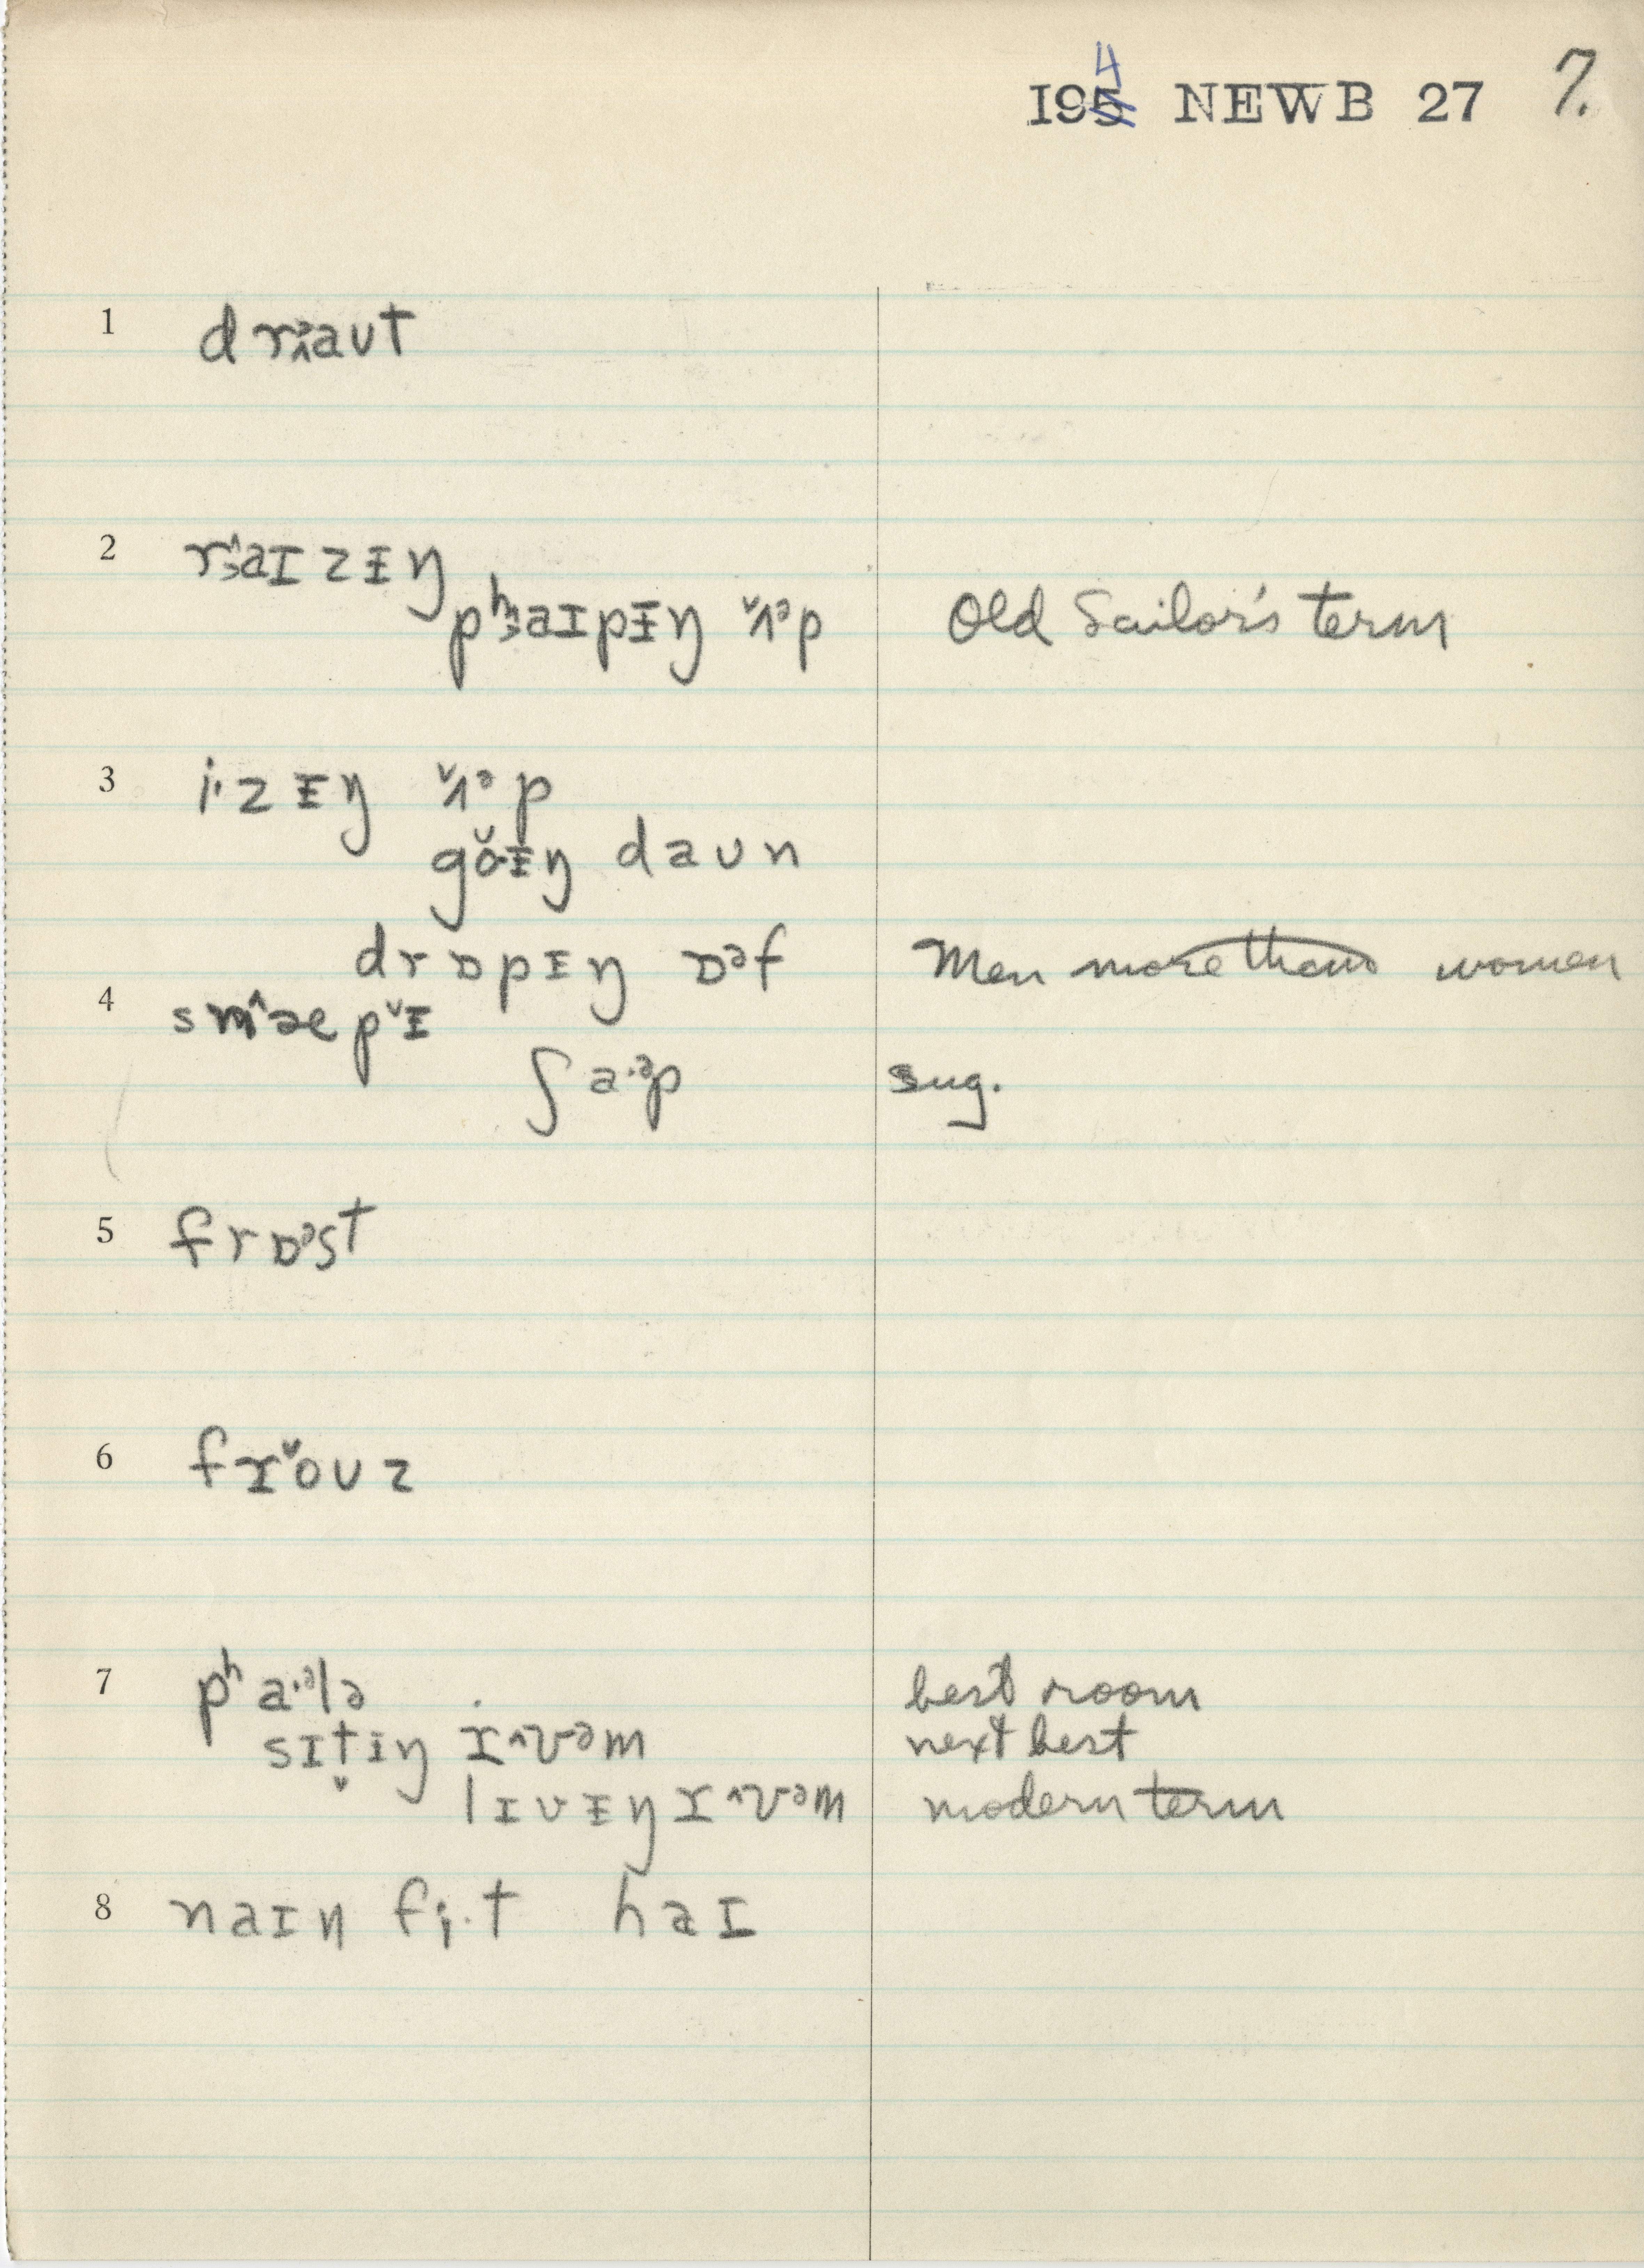 I954 NEWB 27 7.
1 drɜ^aʊt
2 rɜ^aɪzɨŋ
pʰɜaɪpɨŋ ˇʌᵊp Old Sailor's term
3 i·zɨŋ ˇʌᵊp
gǒ·ɨŋ daʊn
drɒpɨŋ ɒᵊf Men more than women
4 sm^æpˇɨ
ʃa·ᵊp sug.
5 frɒᵊst
6 frˇoʊz
7 pʰa·ᵊlə best room
sɪt̬iŋ r^ʊᵊm next best
lɪvɨŋ r^ʊᵊm modern term
8 naɪn fi·t haɪ